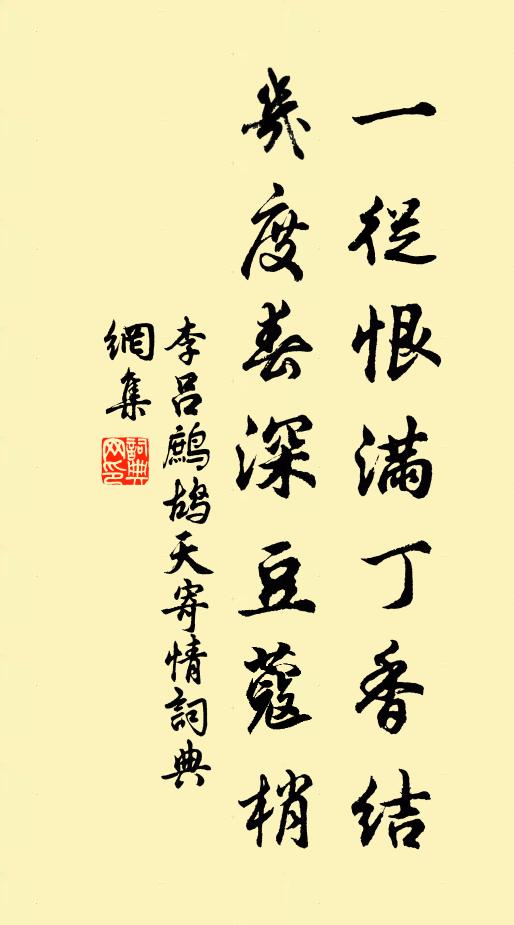 一從恨滿丁香結
幾度春深豆蔻梢
李呂鷓鴣天寄情詞典
網集
詞典網印